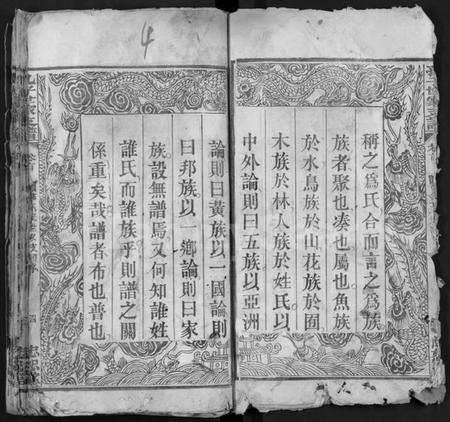 稱之爲氏合而言之爲族
族者聚也湊也屬也魚族
於水鳥族於山花族於園
木族於林人族於姓氏以
中外論則曰五族以亞洲
論則曰黃族以一國論則
曰邦族以一鄉論則曰家
族設無譜焉又何知誰姓
誰氏而誰族乎則譜之關
係重矣哉譜者布也普也
4